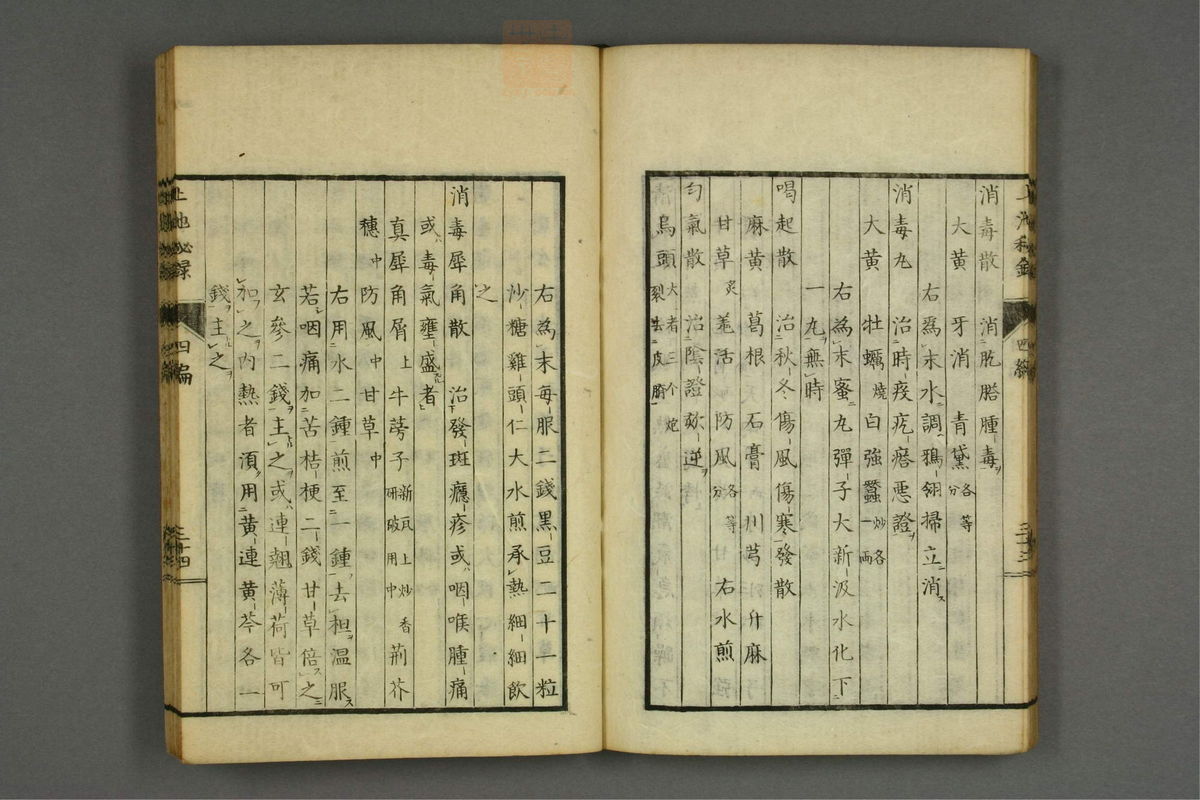 消毒散　消肐膊腫毒ヲ
大黄　牙消　青黛各等分
右爲末水調鵝翎掃立消ス
消毒丸　治時疫疙瘩悪證ヲ
大黄　牡蠣燒　白強蠶炒各一兩
右爲末蜜丸彈子大新汲水化下
一丸無時
喝起散　治秋冬傷風傷寒發散
麻黄　葛根　石膏　川芎　升麻
甘草炙　羗活　防風各等分　右水煎
匀氣散　治陰證欬逆ヲ
烏頭大者三个炮裂去皮臍
右爲末毎服二錢黒豆二十一粒
沙糖雞頭仁大水煎承熱細細飲
之
消毒犀角散　治發斑癮疹或咽喉腫痛
或毒氣壅盛者
真犀角屑上　牛蒡子新瓦上炒香研破用中　荊芥
穗中　防風中　甘草中
右用水二鍾煎至一鍾去柤温服
若咽痛加苦桔梗二錢甘草倍之
玄參二錢主之或連翹薄荷皆可
加之内熱者湏用黄連黄芩各一
錢主之
四編
三十四